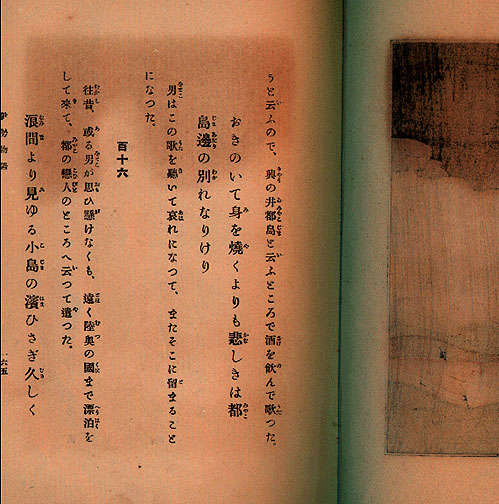 うと云ふので、興の井都島と云ふところで酒を飮んで歌つた。
おきのいて身を燒くよりも悲しきは都
島邊の別れなりけり
男はこの歌を聽いて哀れになつて、またそこに留まること
になつた。
百十六
往昔、或る男が思ひ懸けなくも、遠く陸奥の國まで漂泊を
して來て、都の戀人のところへ云つて遣つた。
浪間より見ゆる小島の濱ひさぎ久しく
伊勢物語
一六五